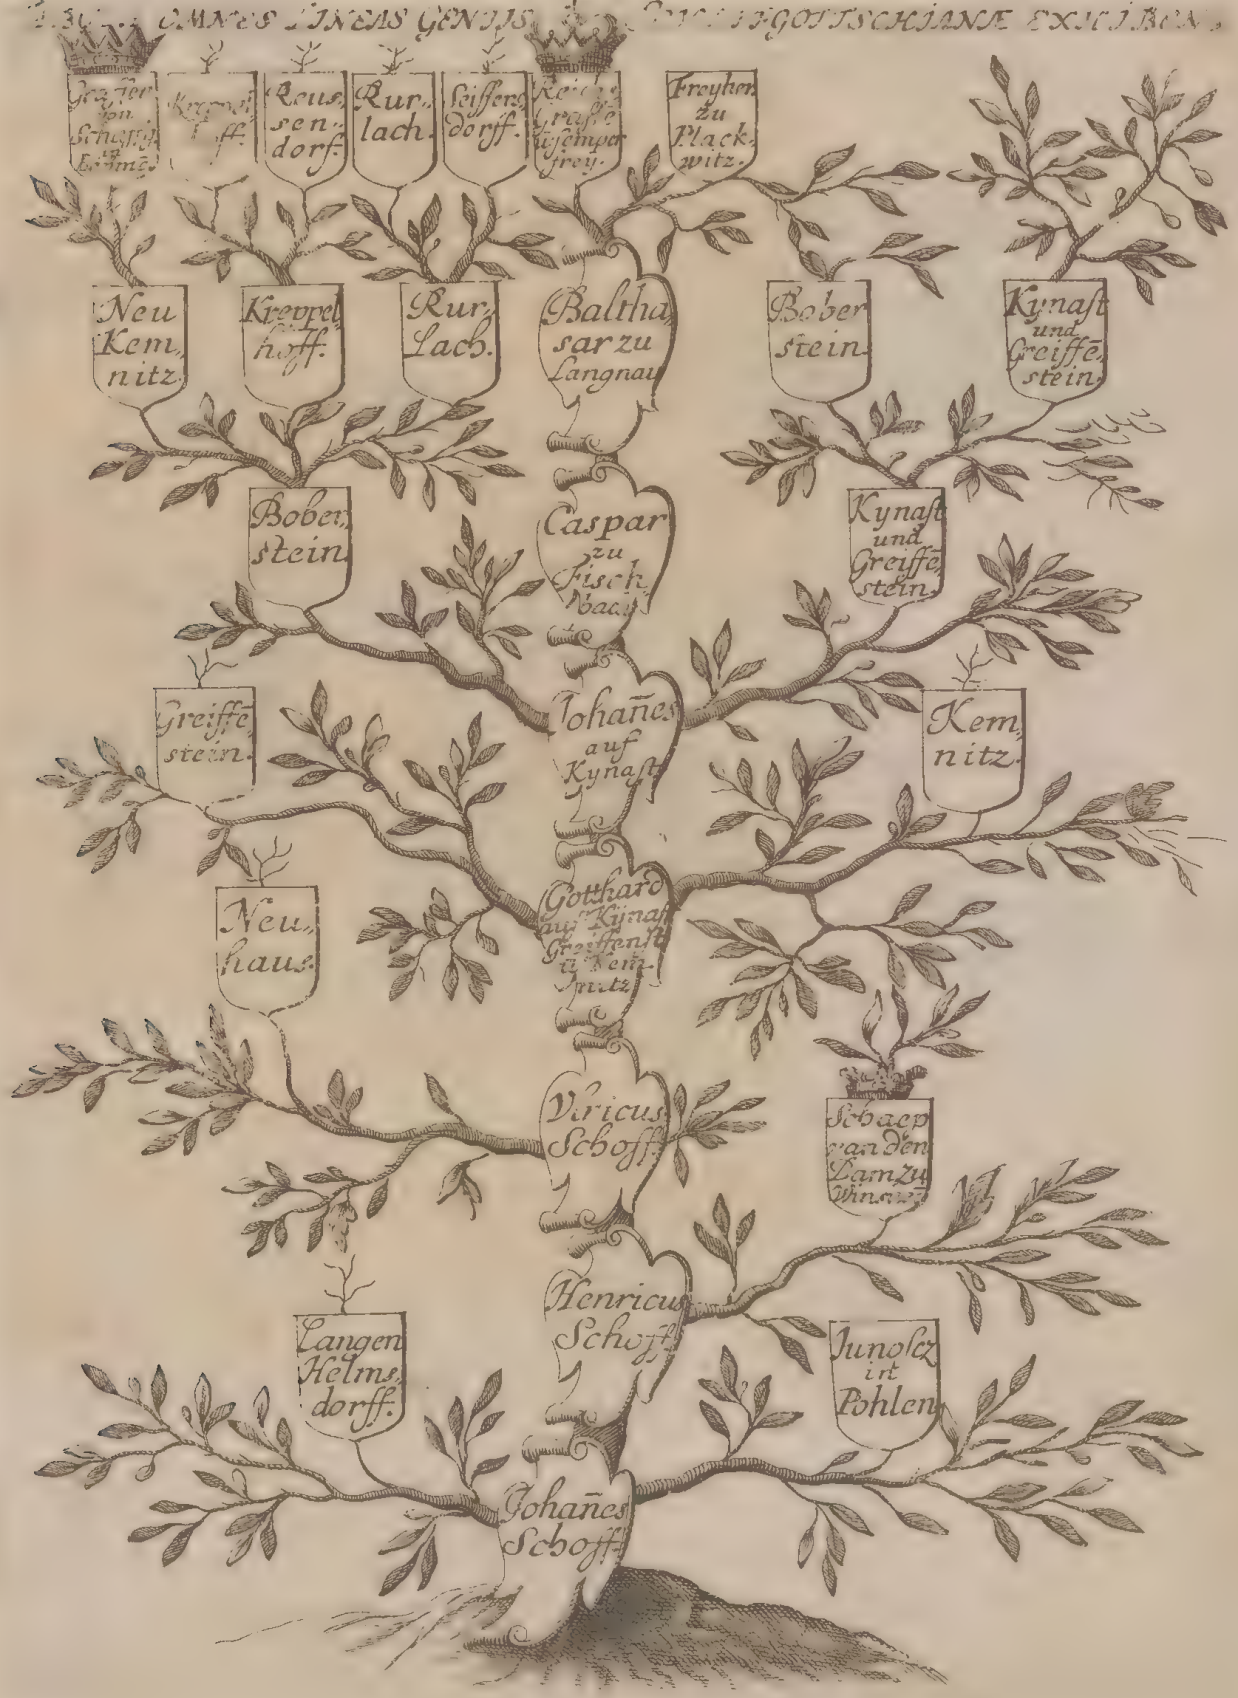 OMNES LINEAS GENTIS SCHAFFGOTTSCHIANÆ EXHIBENS
Graffen
von
Schaffg.
in
Böhmē.
Kreppel
hoff.
Reus„
sen„
dorf.
Rur„
lach.
Seiffers„
dorff.
Reichs
Graffē
ū Semper
frey.
Freyhen
zu
Plack„
witz.
Neu
Kem„
nitz.
Kreppel
hoff.
Rur„
Lach.
Baltha„
sar zu
Langnau
Bober
stein.
Kynaſt
und
Greiffē„
stein.
Bober„
stein.
Caspar
zu
Fisch
bach
Kynaſt
und
Greiffē„
stein.
Greiffē„
stein.
Johañes
auf
Kynaſt
Kem„
nitz.
Neu„
haus.
Gotthard
auf Kÿnaſt
Greiffenſt
ū Kem„
nitz
Vlricus
Schoff.
Schaep
van den
Dam zu
Henricus
Schoff
Langen
Helms„
dorff.
in
Pohlen
Johañes
Schoff.